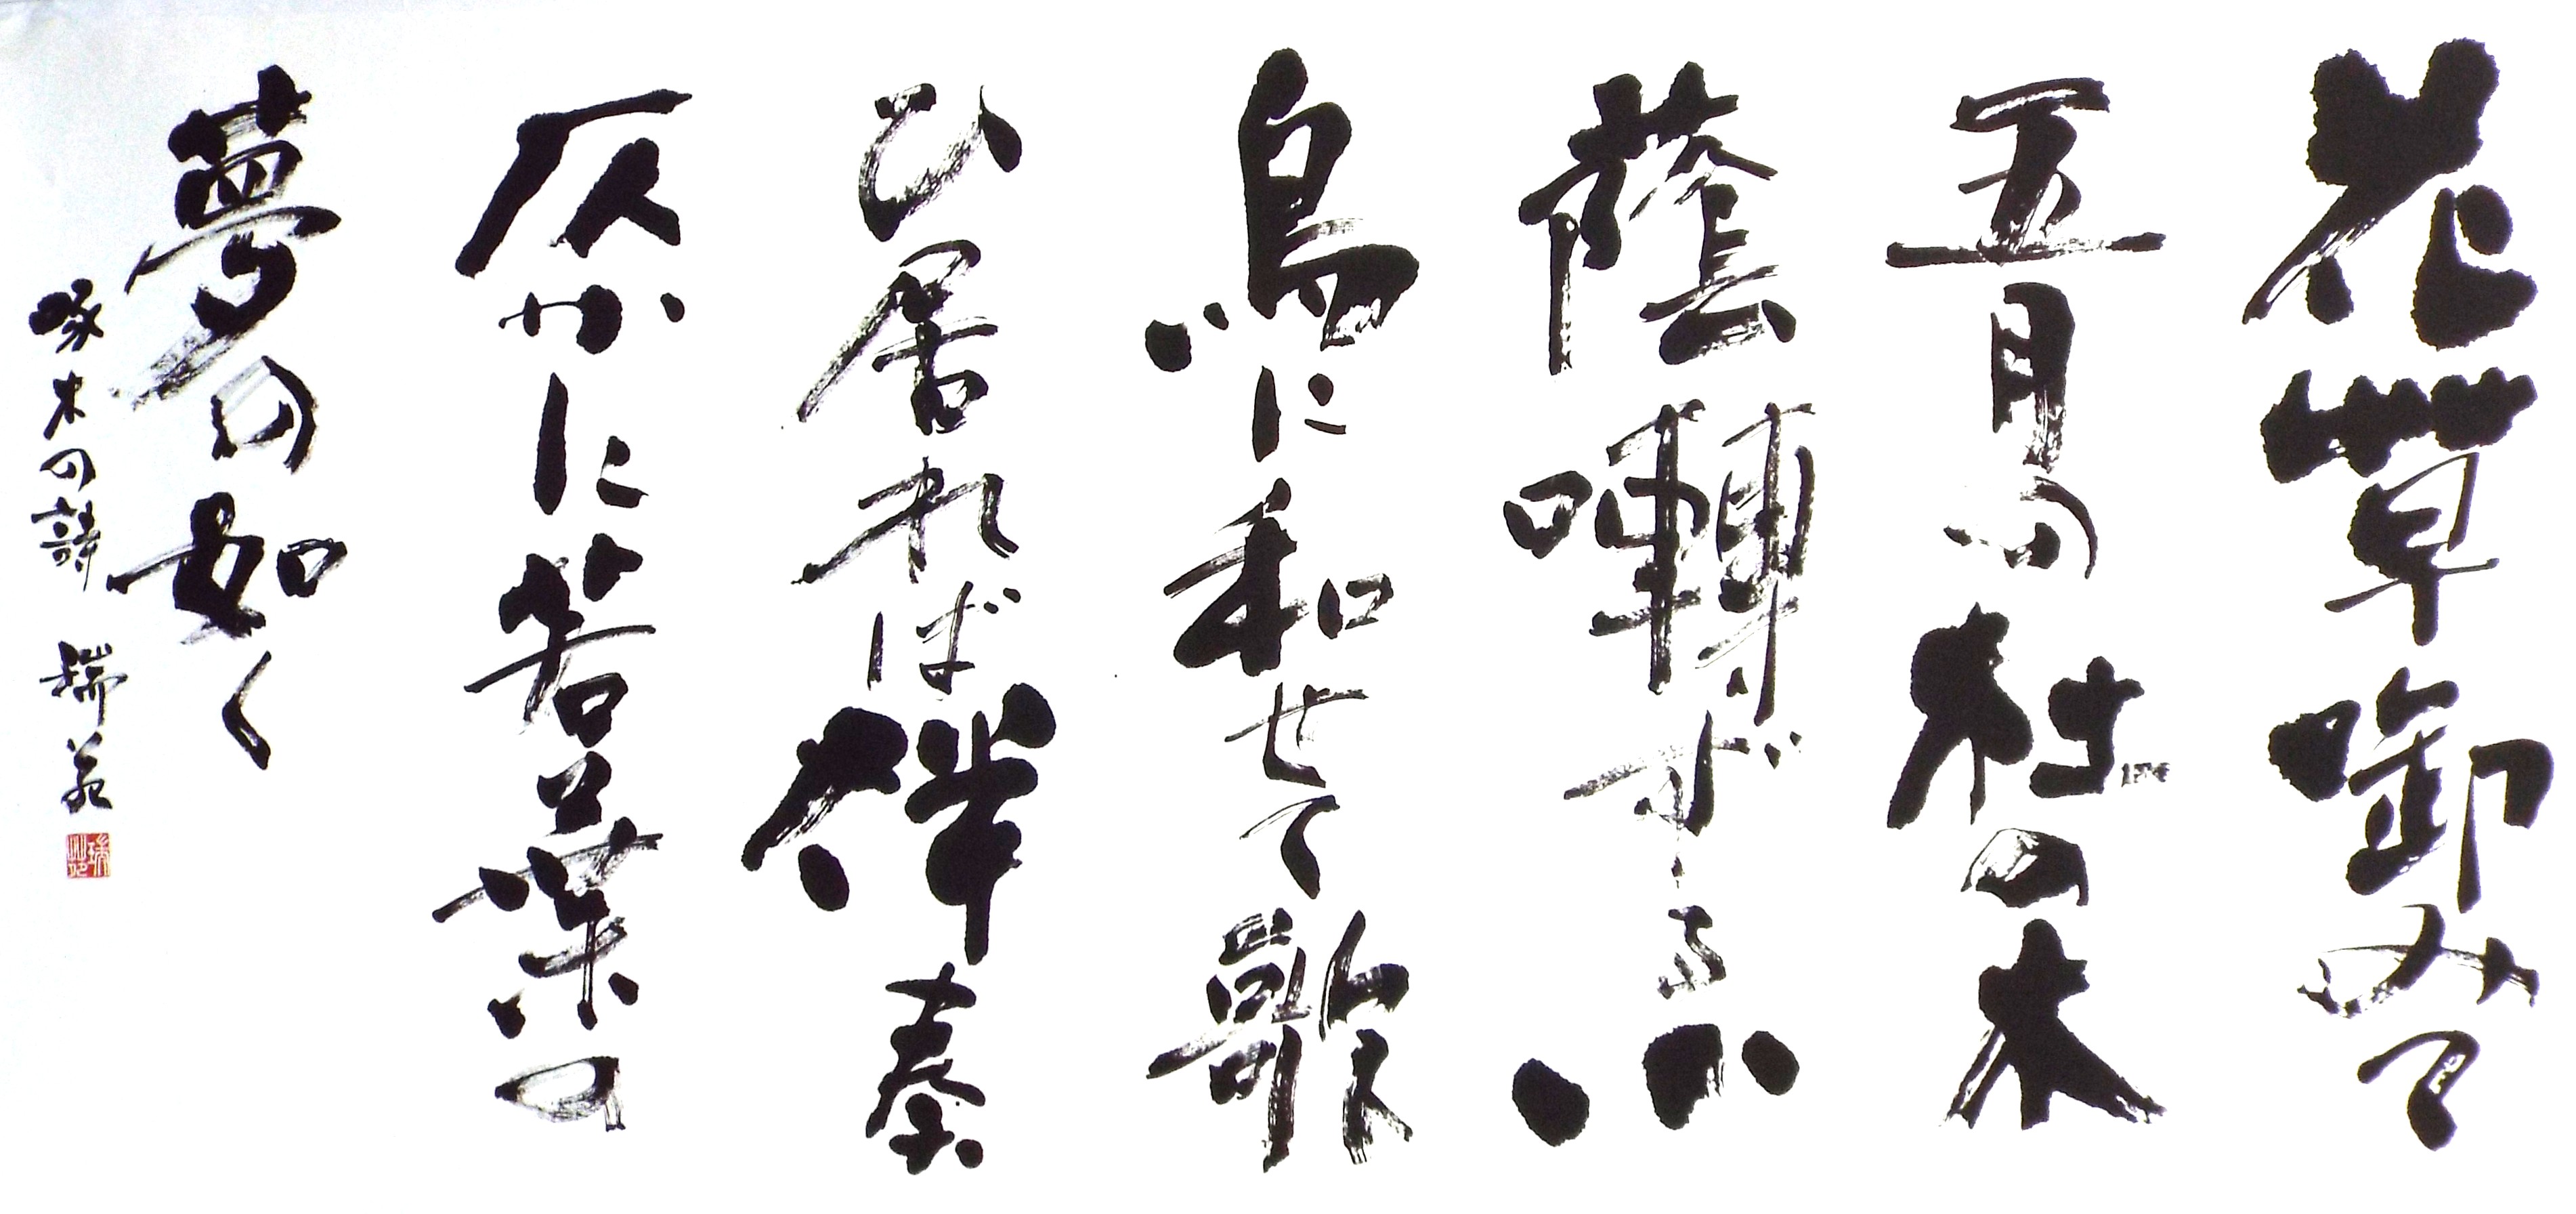 花草啣みて
五月の杜の木
蔭囀ずる小
鳥に和せて歌
ひ居れば伴奏
仄かに若葉の
夢の如く
啄木の詩 瑞苑